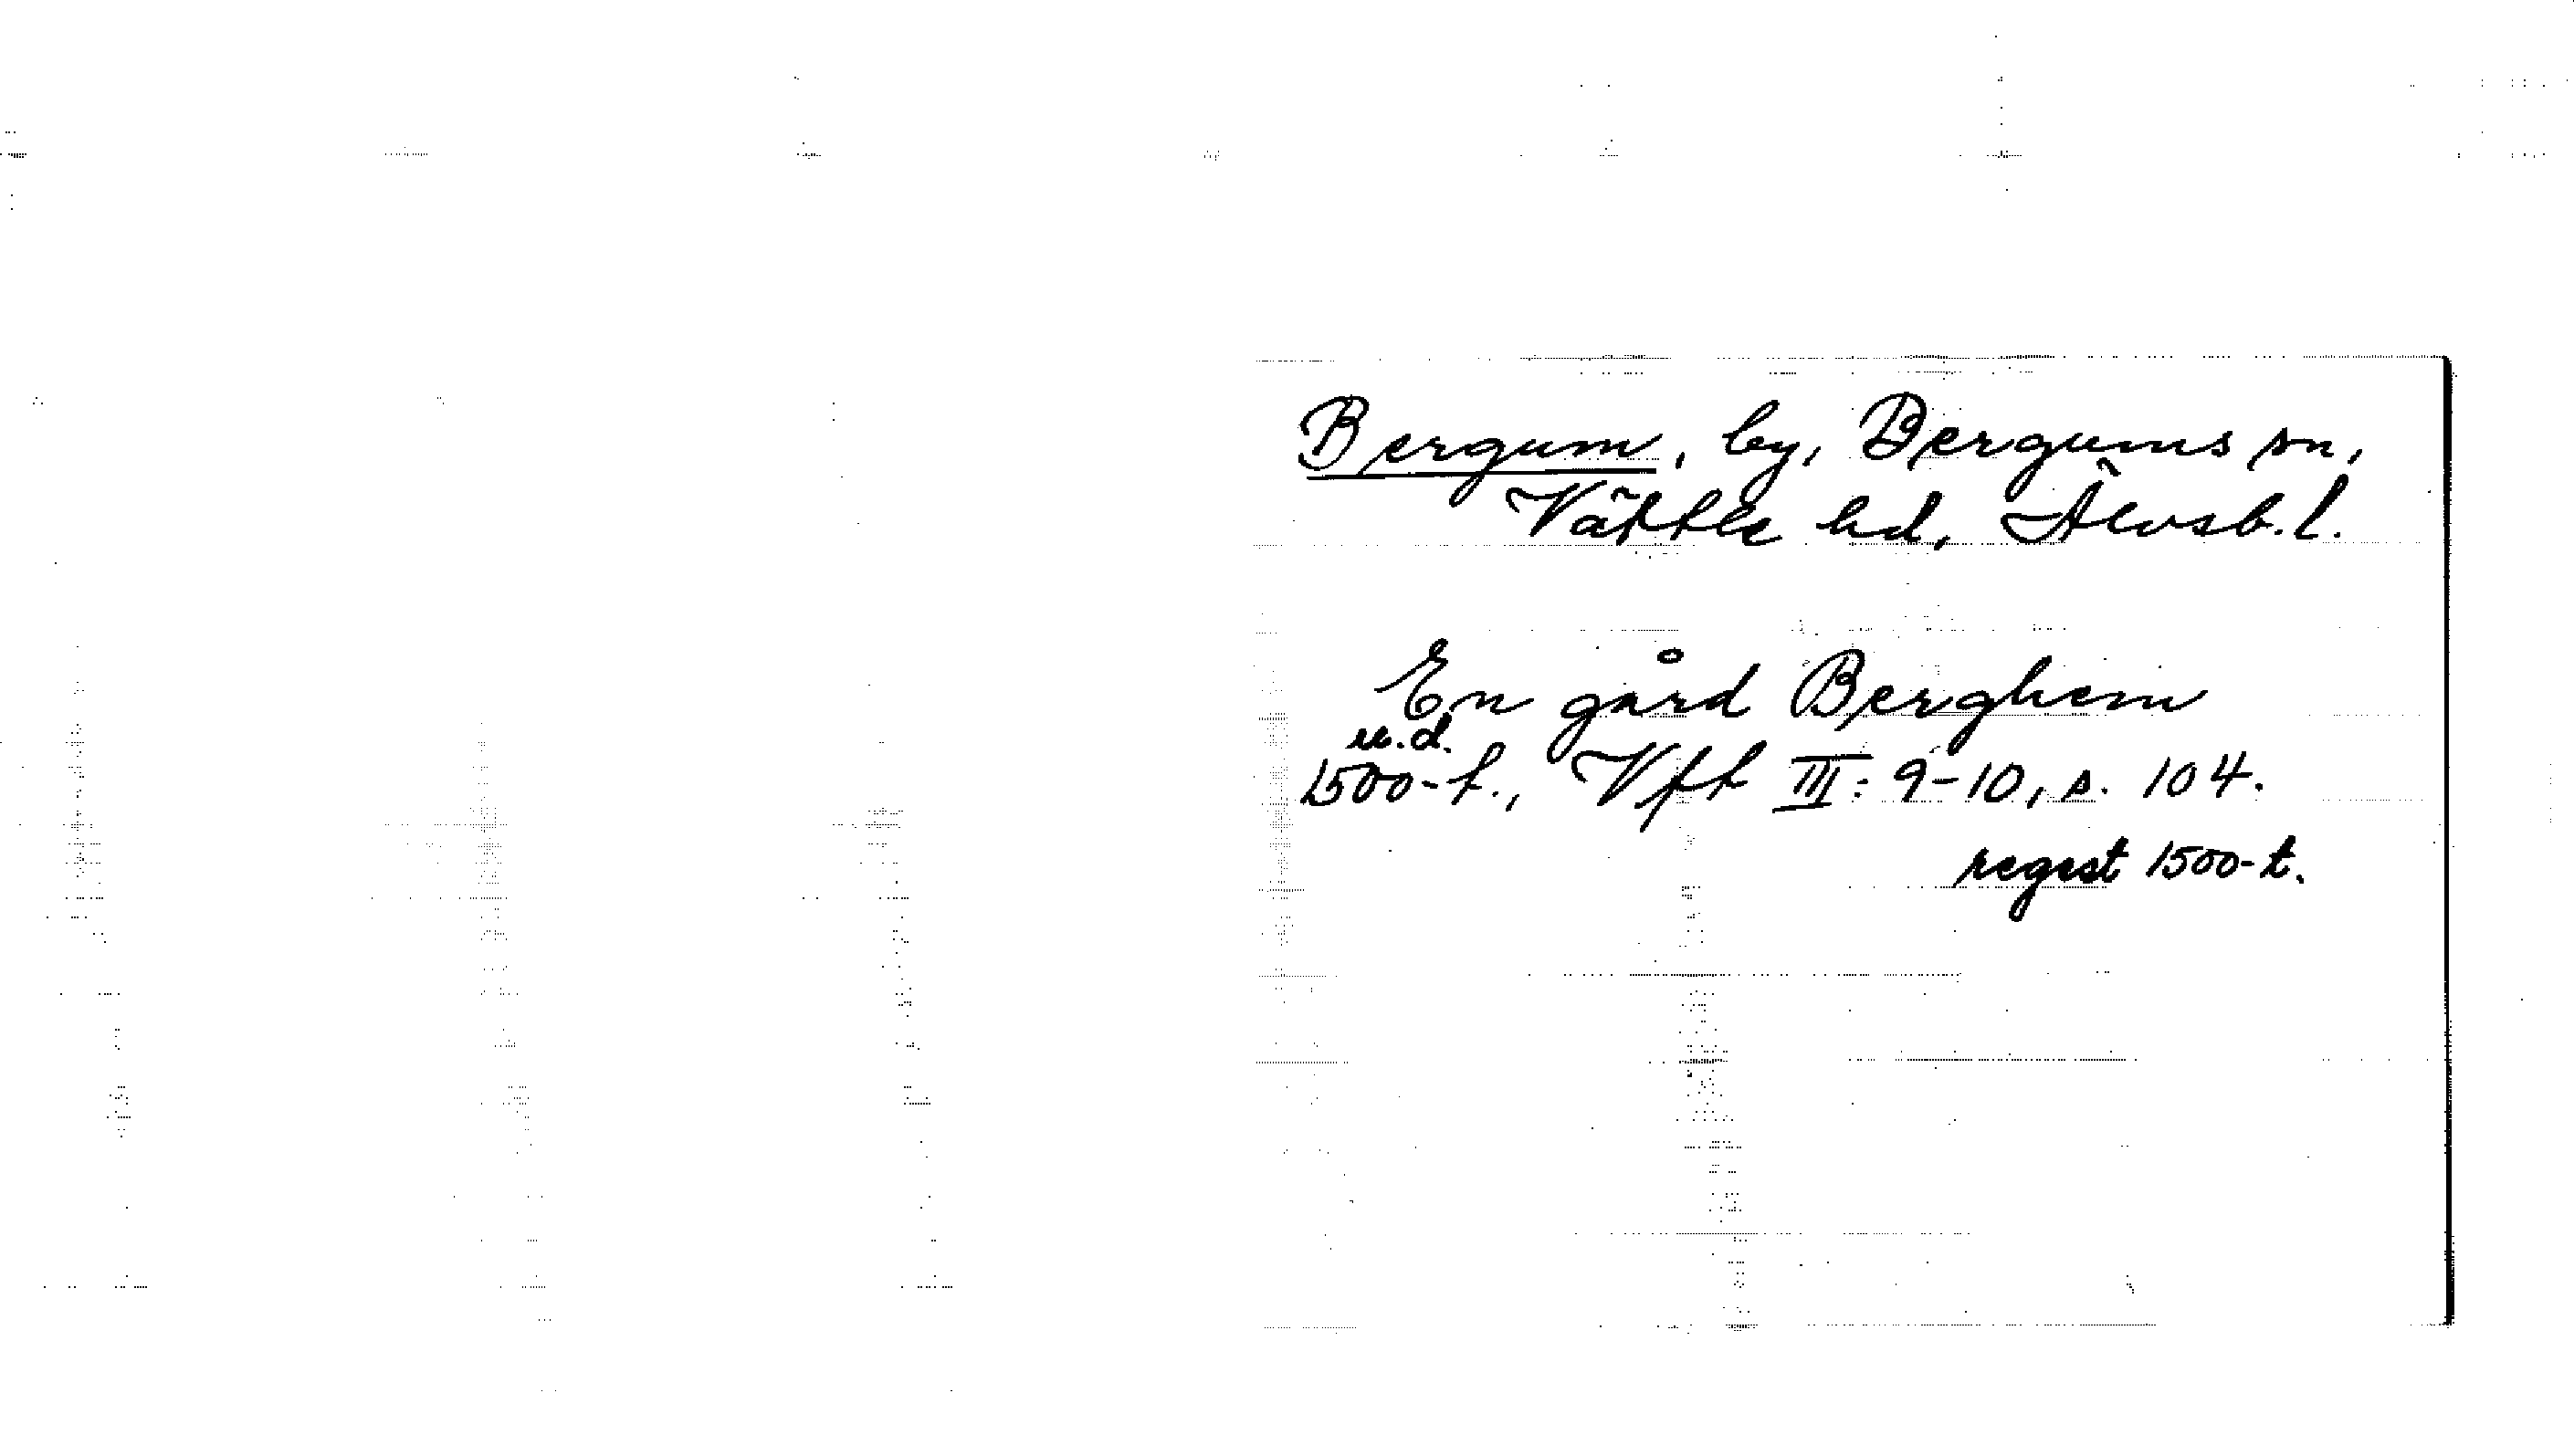 Bergum, by, Bergums sn,
Vättle hd, Älvsb. l.
En gård Berghem
u.d.
1500-t., Vft III: 9-10, s. 104.
regest 1500-t.